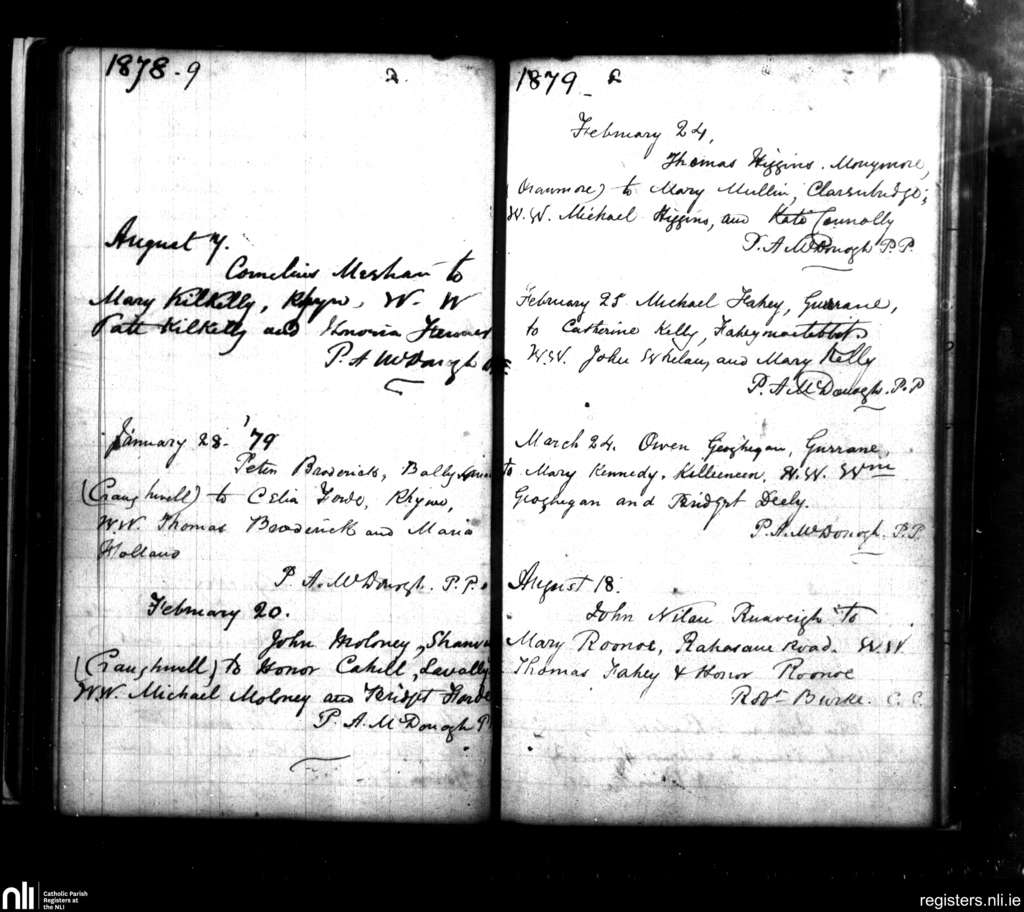 1878-9
2
August 7.
Cornelius Meehan to
Mary Kilkelly, Rhyne, W. W
Patt Kilkelly and Honoria
P. A McDonogh
January 28 - '79
Peter Broderick,
(Craughwell) to Celia Forde, Rhyne,
W.W. Thomas Broderick and Maria
Holland
P. A. McDonogh. P.P.
February 20.
John Moloney,
(Craughwell) to Honor Cahill, Lavally
W.W. Michael Moloney and Bridget Forde
P. A. McDonogh P
1879 -
February 24,
Thomas Higgins. Moneymore,
(Oranmore) to Mary Mullin, Clarenbridge;
W.W. Michael Higgins, and Kate Connolly
P. A McDonogh P.P.
February 25 Michael Fahey, Gurrane,
to Catherine Kelly,
W.W. John Whelan, and Mary Kelly
P. A. McDonogh. P.P
March 24. Owen Geoghegan, Gurrane,
to Mary Kennedy, Killeeneen, W.W. Wm
Geoghegan and Bridget Deely.
P. A. McDonogh. P.P.
August 18.
John Nilan to
Mary Roonoe, Rahasane Road. W.W
Thomas Fahey & Honor Roonoe
Robt Burke. C.C.
nli
Catholic Parish
Registers at
the NLI
registers.nli.ie